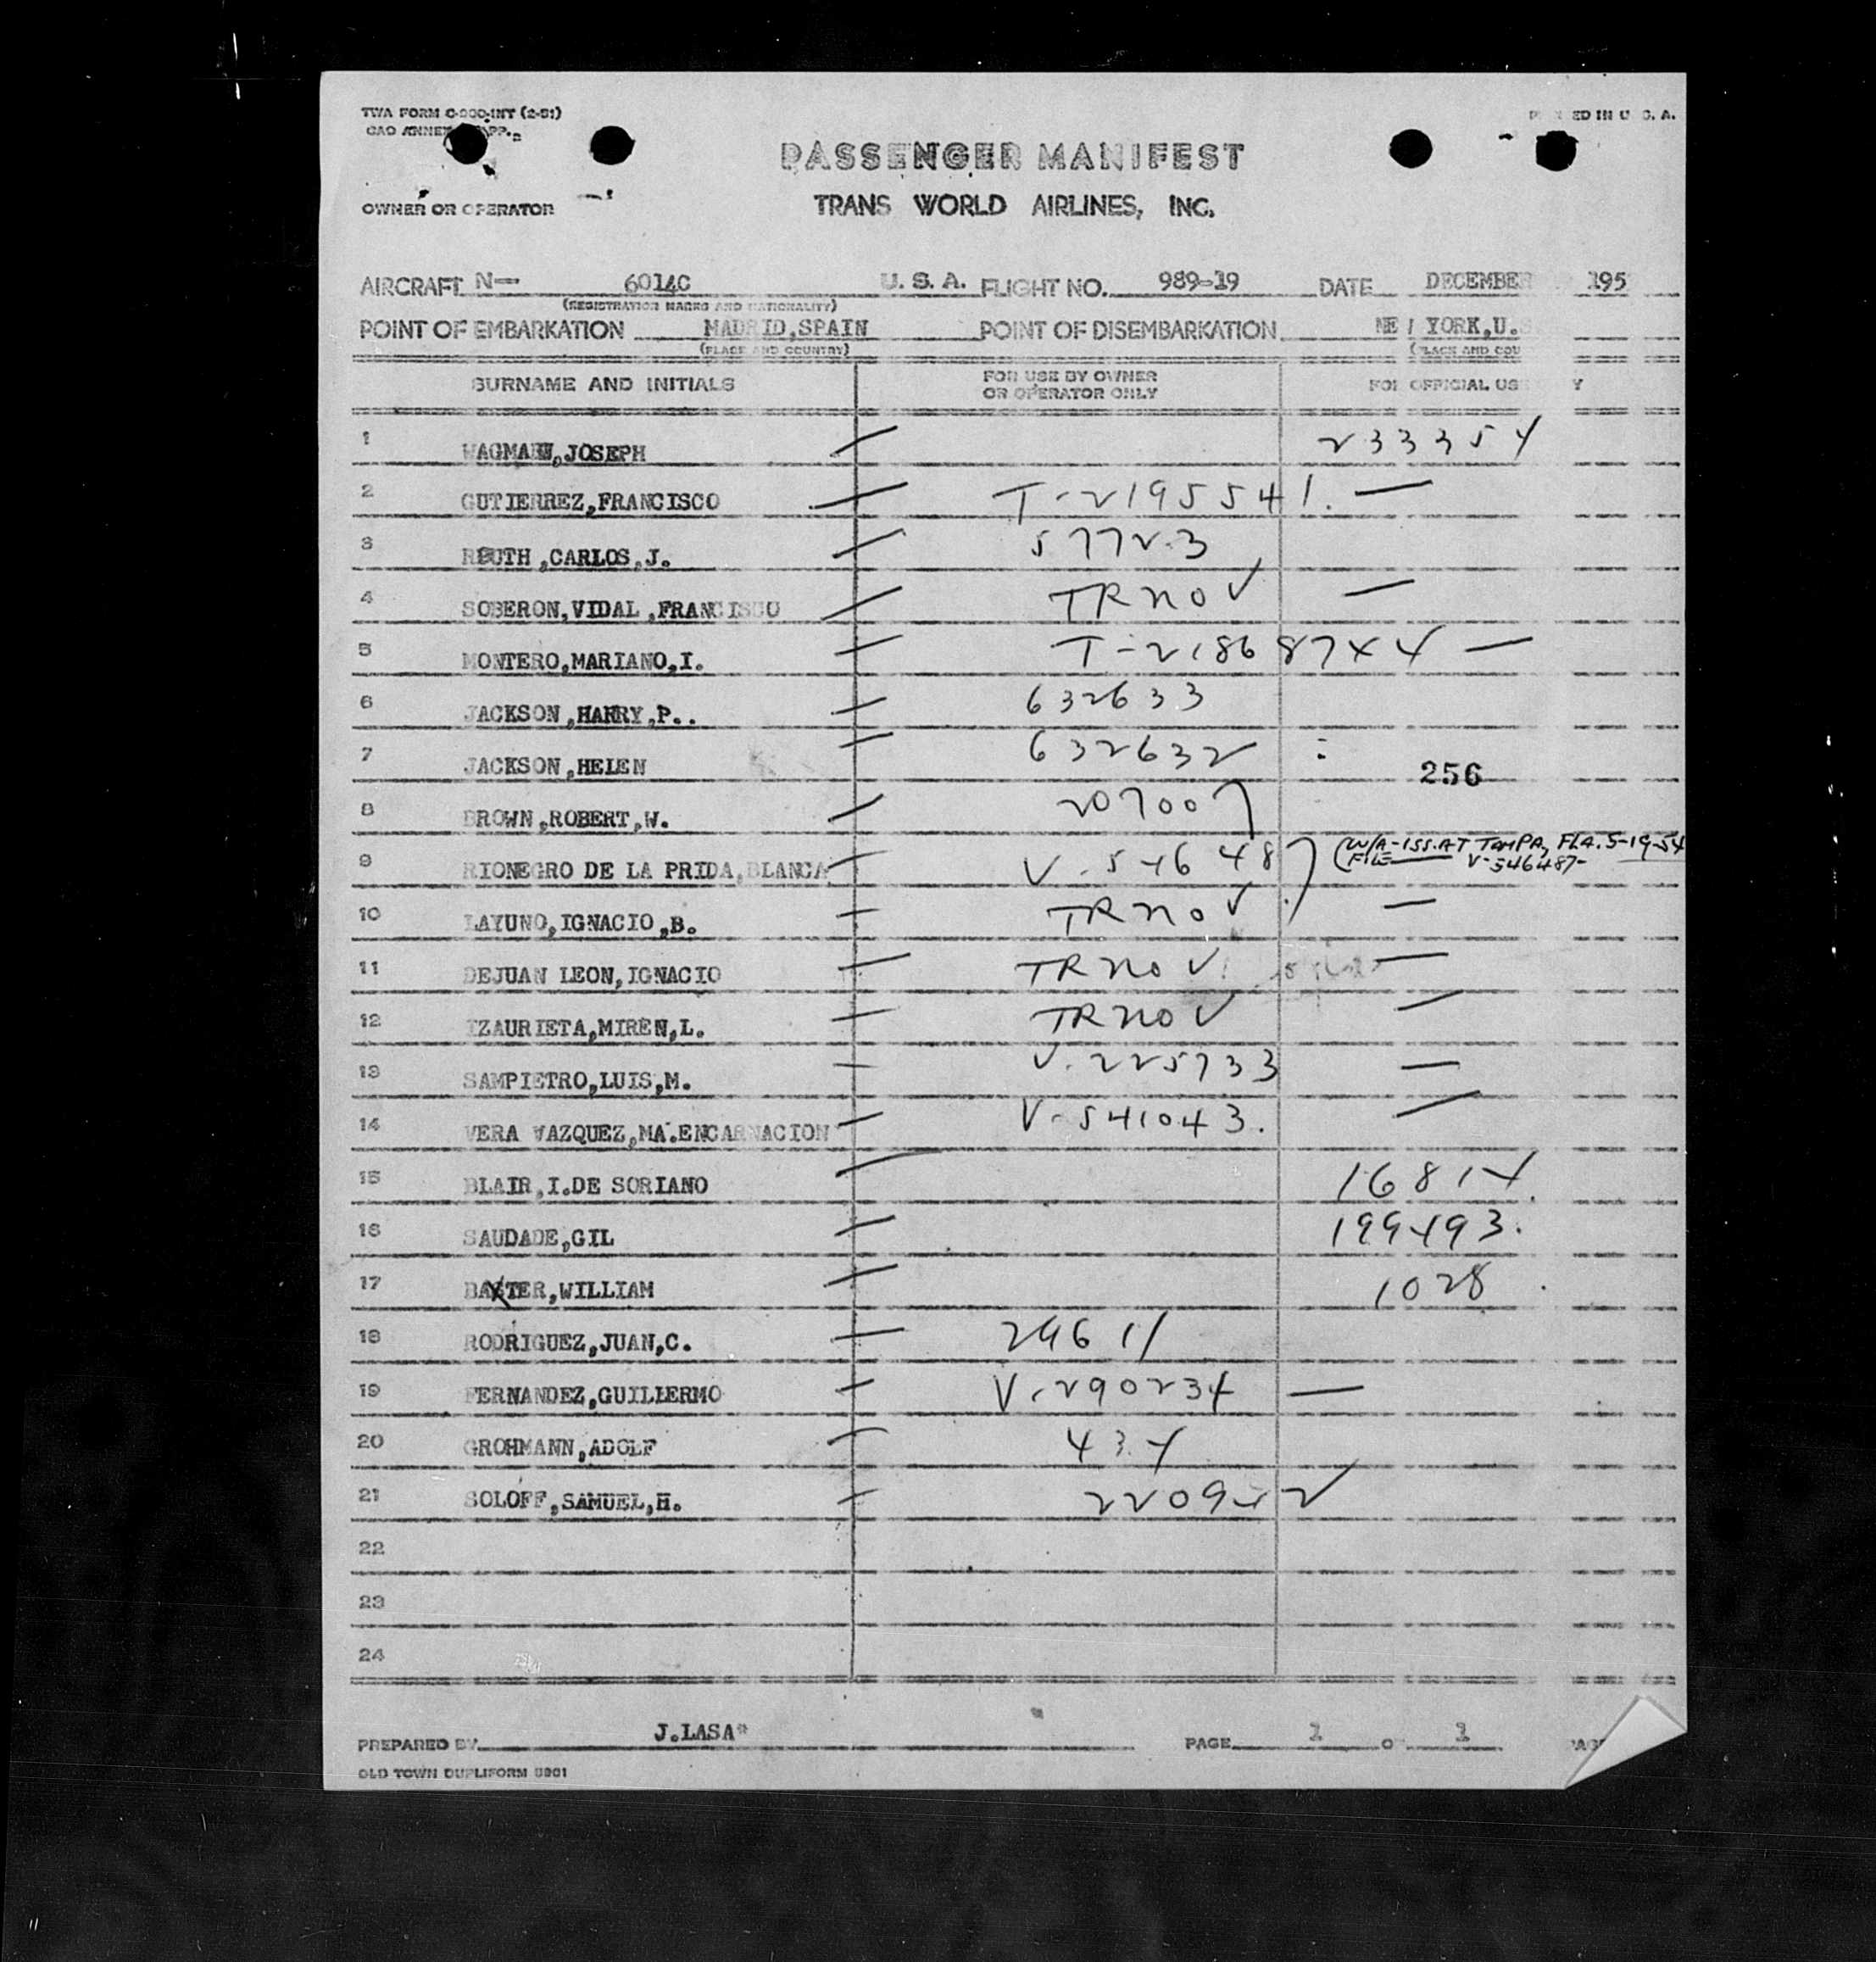 TWA FORM C-200-INT (2-51)
CAO ANNEX APP.
ED IN U. S. A.
PASSENGER MANIFEST
OWNER OR OPERATOR
TRANS WORLD AIRLINES, INC.
AIRCRAFT N— 6014C U. S. A. FLIGHT NO. 989-19 DATE DECEMBER 195
(REGISTRATION MARKS AND NATIONALITY)
POINT OF EMBARKATION MADRID,SPAIN POINT OF DISEMBARKATION NE YORK,U.S
(PLACE AND COUNTRY) (PLACE AND COU
SURNAME AND INITIALS FOR USE BY OWNER OR OPERATOR ONLY FOR OFFICIAL USE Y
1 WAGMANN,JOSEPH — 233354
2 GUTIERREZ,FRANCISCO — T-2195541. —
3 REUTH,CARLOS,J. — 57723
4 SOBERON,VIDAL,FRANCISCO — TR no V —
5 MONTERO,MARIANO,I. — T-21868744 —
6 JACKSON,HARRY,P.. — 632633
7 JACKSON,HELEN — 632632
256
8 BROWN,ROBERT,W. — 207007
9 RIONEGRO DE LA PRIDA,BLANCA V-546487 (W/A-ISS.AT TAMPA, FLA. 5-19-54
FILE — V-546487-
10 LAYUNO,IGNACIO,B. — TR no V —
11 DEJUAN LEON,IGNACIO — TR no V —
12 IZAURIETA,MIREN,L. — TR no V —
13 SAMPIETRO,LUIS,M. — V-225733 —
14 VERA VAZQUEZ,MA.ENCARNACION — V-541043. —
15 BLAIR,I.DE SORIANO — 16814.
16 SAUDADE,GIL — 199493.
17 BAXTER,WILLIAM — 1028
18 RODRIGUEZ,JUAN,C. — 29611
19 FERNANDEZ,GUILLERMO — V-290234 —
20 GROHMANN,ADOLF — 434
21 SOLOFF,SAMUEL,H. — 220942
22
23
24
PREPARED BY J.LASA" PAGE 1 O 1 AGE
OLD TOWN DUPLIFORM